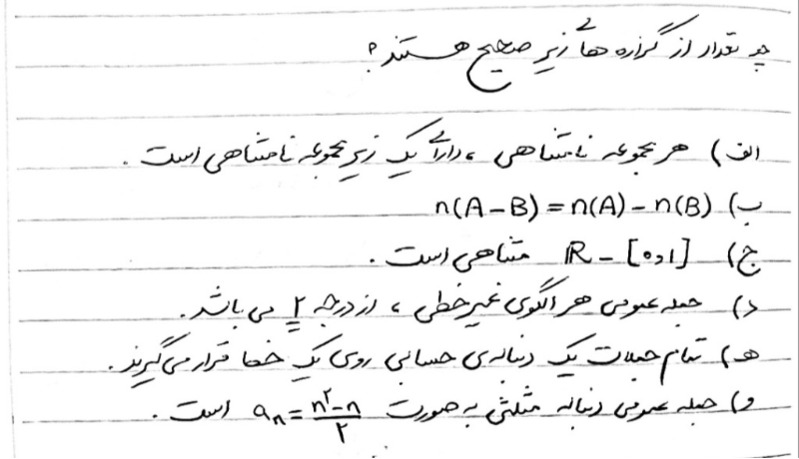 چه تعداد از گزاره های زیر صحیح هستند؟
الف) هر مجموعه نامتناهی ، دارای یک زیر مجموعه نامتناهی است .
ب) n(A-B) = n(A) - n(B)
ج) R - [۰,۱] متناهی است .
د) جمله عمومی هر الگوی غیرخطی ، از درجه ۲ می باشد .
ه) تمام جملات یک دنباله ی حسابی روی یک خط قرار می گیرند .
و) جمله عمومی دنباله مثلثی به صورت aₙ = (n²-n)/۲ است .